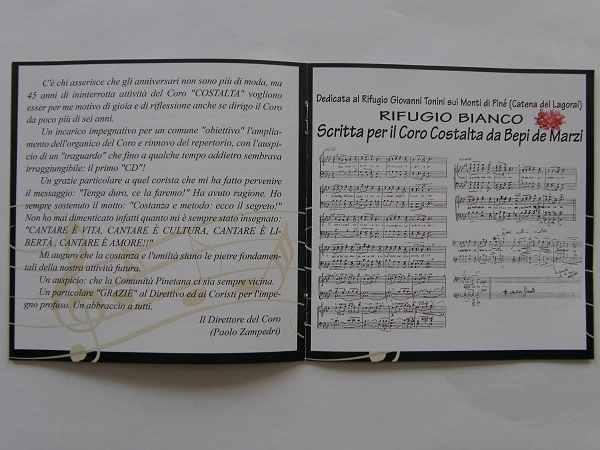 C'è chi asserisce che gli anniversari non sono più di moda, ma
45 anni di ininterrotta attività del Coro "COSTALTA" vogliono
esser per me motivo di gioia e di riflessione anche se dirigo il Coro
da poco più di sei anni.
Un incarico impegnativo per un comune "obiettivo" l'amplia-
mento dell'organico del Coro e rinnovo del repertorio, con l'auspi-
cio di un "traguardo" che fino a qualche tempo addietro sembrava
irraggiungibile: il primo "CD"!
Un grazie particolare a quel corista che mi ha fatto pervenire
il messaggio: "Tenga duro, ce la faremo!" Ha avuto ragione. Ho
sempre sostenuto il motto: "Costanza e metodo: ecco il segreto!"
Non ho mai dimenticato infatti quanto mi è sempre stato insegnato:
"CANTARE È VITA, CANTARE È CULTURA, CANTARE È LI-
BERTÀ, CANTARE È AMORE!!"
Mi auguro che la costanza e l'umiltà siano le pietre fondamen-
tali della nostra attività futura.
Un auspicio: che la Comunità Pinetana ci sia sempre vicina.
Un particolare "GRAZIE" al Direttivo ed ai Coristi per l'impe-
gno profuso. Un abbraccio a tutti.
Il Direttore del Coro
(Paolo Zampedri)
Dedicata al Rifugio Giovanni Tonini sui Monti di Piné (Catena del Lagorai)
RIFUGIO BIANCO
Scritta per il Coro Costalta da Bepi de Marzi